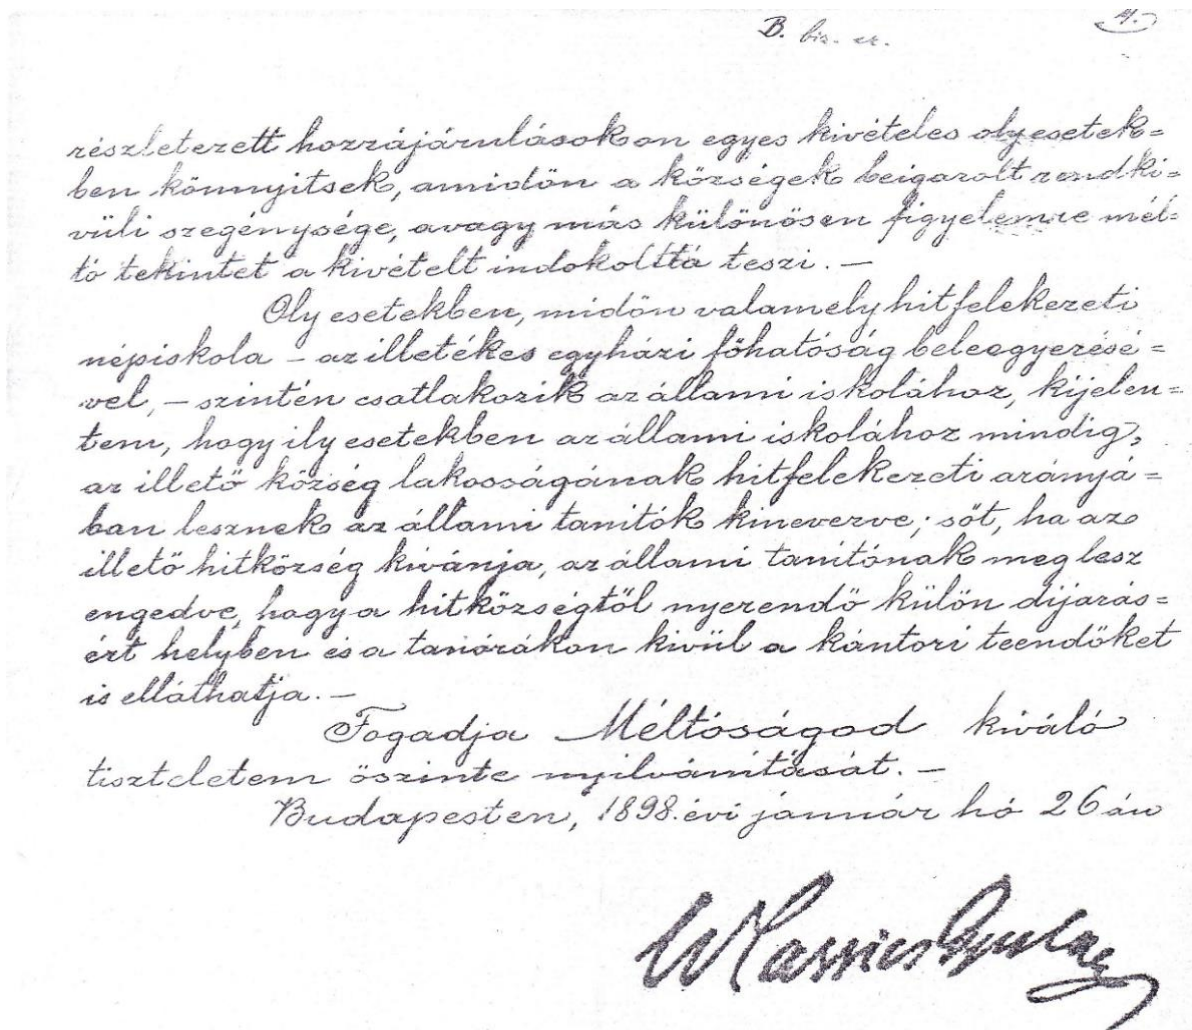 4.
B. biz. er.
részletezett hozzájárulásokon egyes kivételes oly esetek=
ben könnyitsek, amidőn a községek beigazolt rendki=
vüli szegénysége, avagy más különösen figyelemre mél=
tó tekintet a kivételt indokolttá teszi. —
Oly esetekben, midőn valamely hitfelekezeti
népiskola – az illetékes egyházi főhatóság beleegyezésé=
vel, – szintén csatlakozik az állami iskolához, kijelen=
tem, hogy ily esetekben az állami iskolához mindig,
az illető község lakosságának hitfelekezeti arányá=
ban lesznek az állami tanitók kinevezve; sőt, ha az
illető hitközség kivánja, az állami tanitónak meg lesz
engedve, hogy a hitközségtől nyerendő külön dijazás=
ért helyben és a tanórákon kivül a kántori teendőket
is elláthatja. —
Fogadja Méltóságod kiváló
tiszteletem őszinte nyilvánítását. —
Budapesten, 1898. évi január hó 26 án
Wlassics Gyula